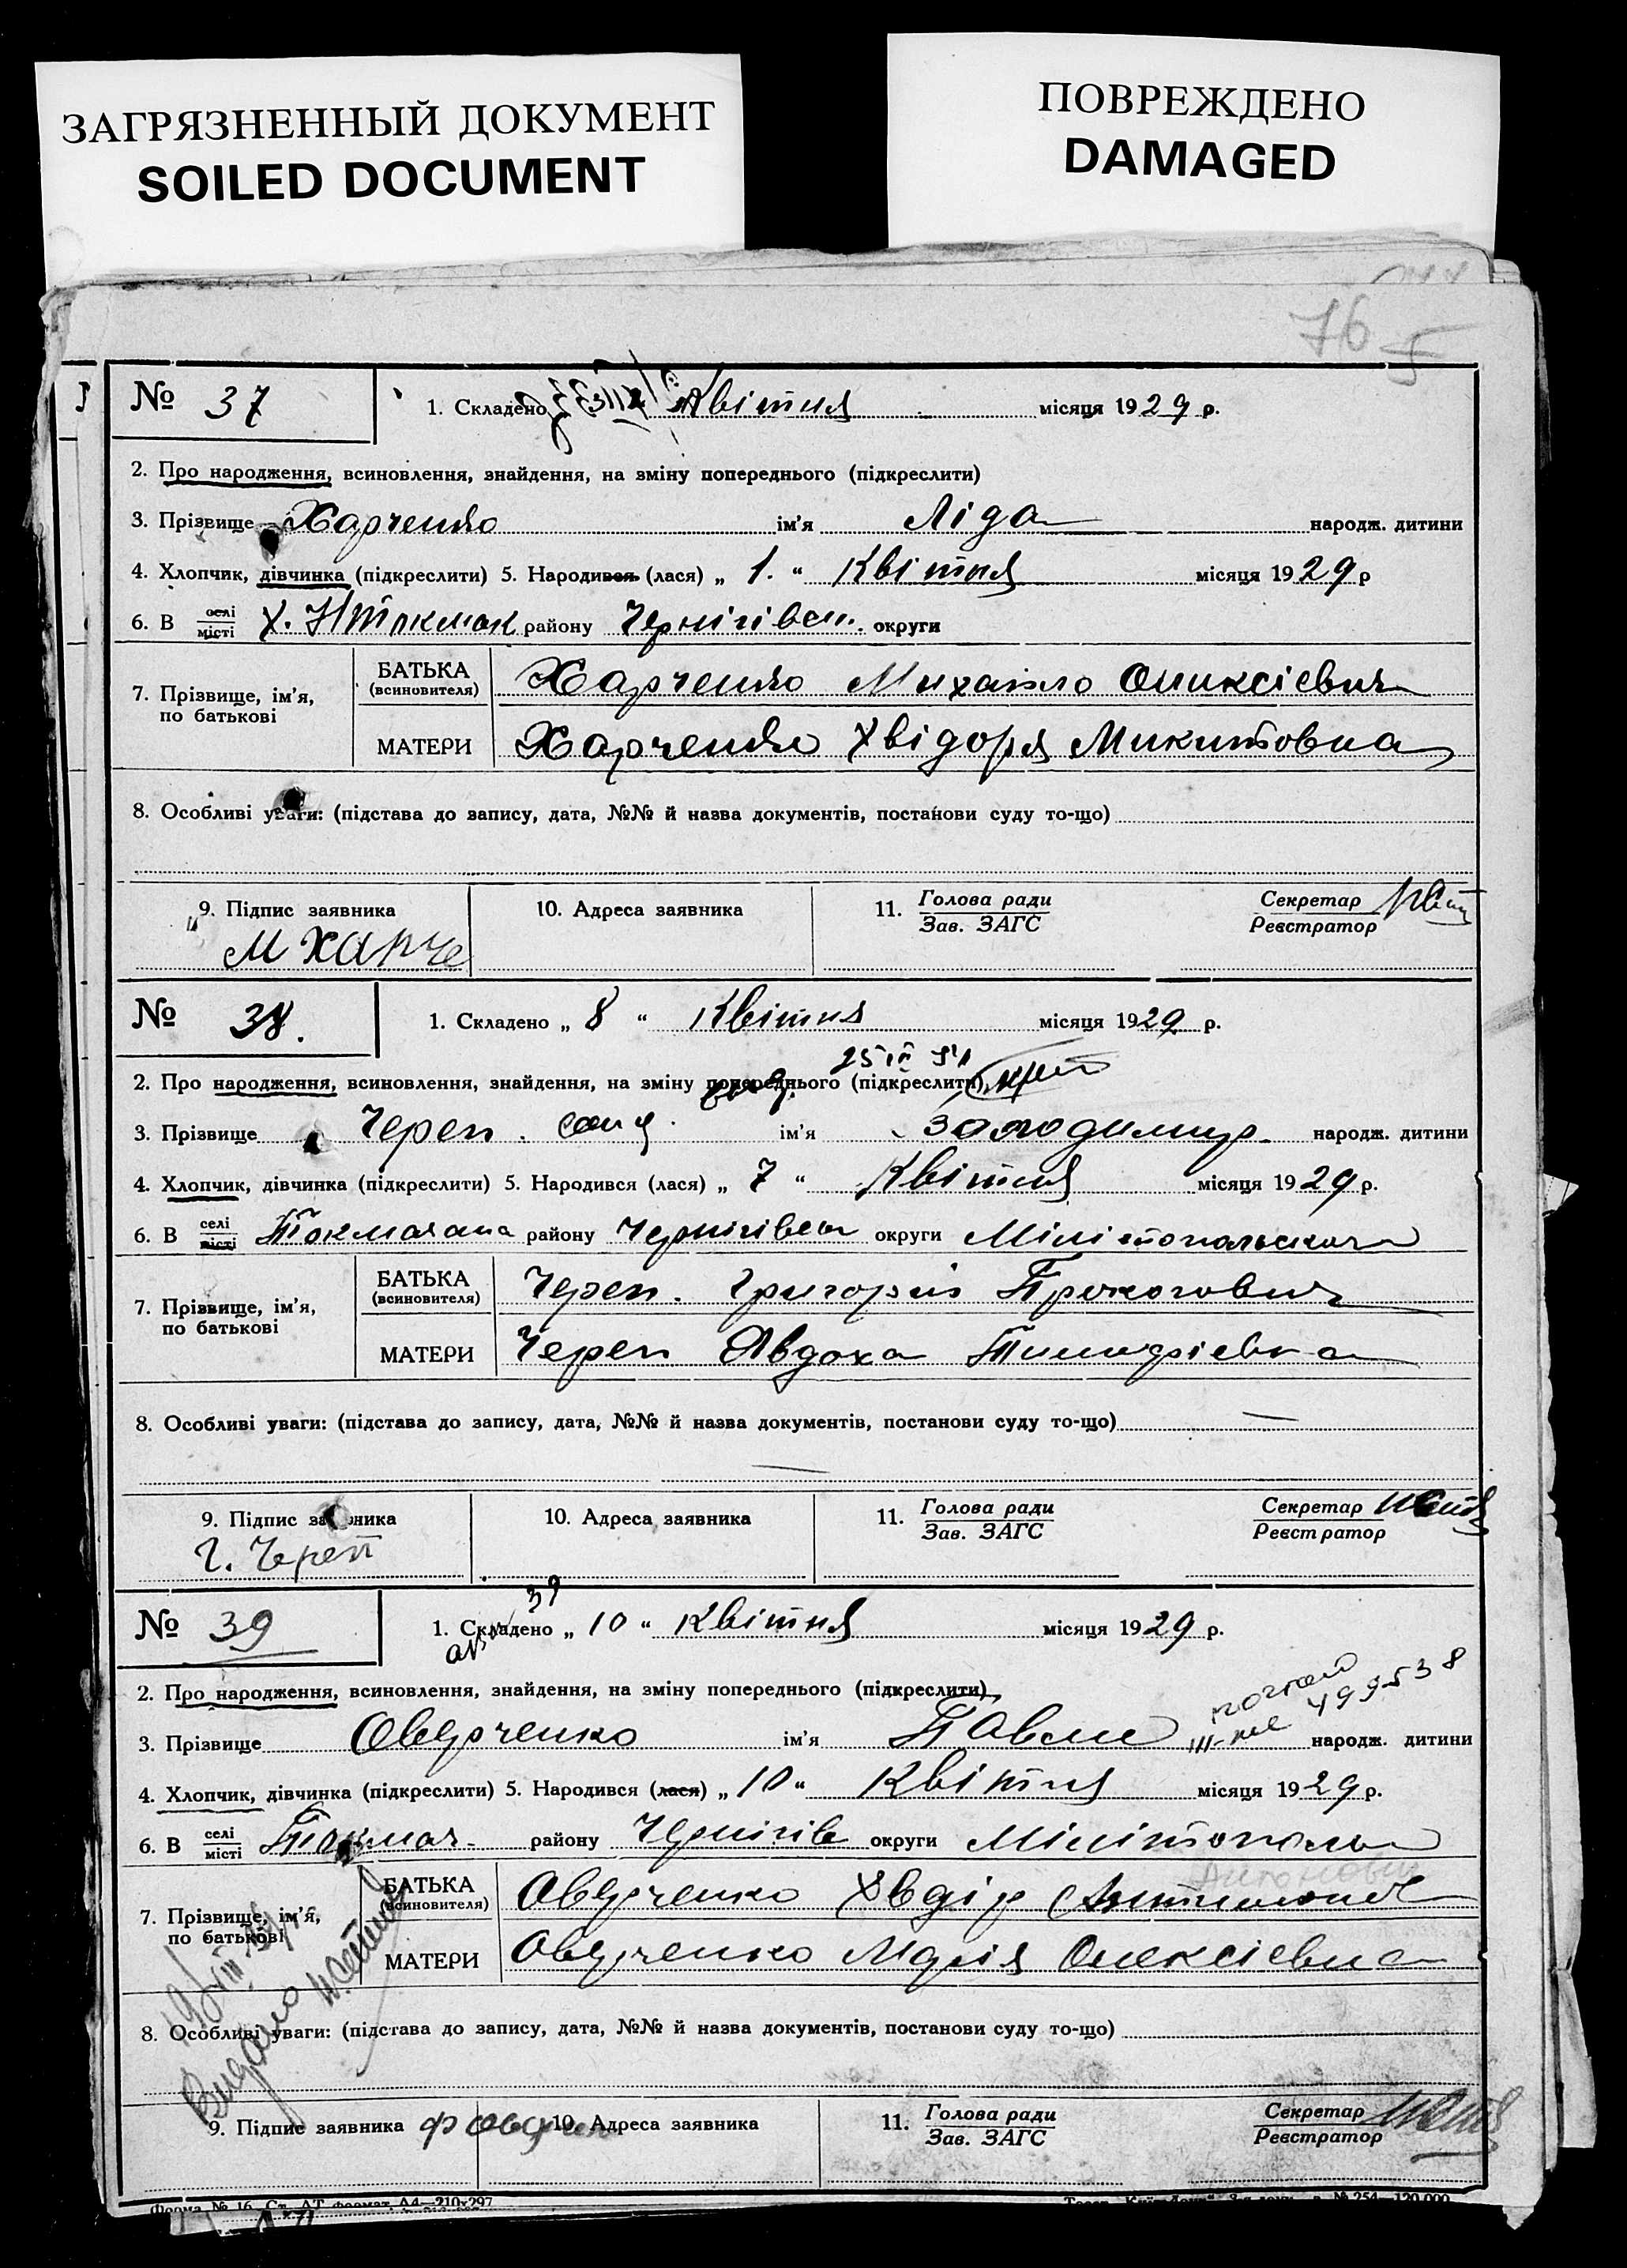 ЗАГРЯЗНЕННЫЙ ДОКУМЕНТ
SOILED DOCUMENT
ПОВРЕЖДЕНО
DAMAGED
76
№ 37
1. Складено Квітня місяця 1929 р.
2. Про народження, всиновлення, знайдення, на зміну попереднього (підкреслити)
3. Прізвище Харченко ім'я Ліда народж. дитини
4. Хлопчик, дівчинка (підкреслити) 5. Народився (лася) „ 1. “ Квітня місяця 1929 р
6. В селі місті Х. Н Токмак району Чернігівськ. округи
7. Прізвище, ім'я, по батькові
БАТЬКА (всиновителя) Харченко Михайло Олексієвич
МАТЕРИ Харченко Хвідоря Микитовна
8. Особливі уваги: (підстава до запису, дата, №№ й назва документів, постанови суду то-що)
9. Підпис заявника 10. Адреса заявника 11. Голова ради Зав. ЗАГС Секретар Реєстратор
М Харче
№ 38.
1. Складено „ 8 “ Квітня місяця 1929 р.
2. Про народження, всиновлення, знайдення, на зміну попереднього (підкреслити)
3. Прізвище Череп ім'я Золодимир народж. дитини
4. Хлопчик, дівчинка (підкреслити) 5. Народився (лася) „ 7 “ Квітня місяця 1929 р.
6. В селі місті району Чернігівськ округи
7. Прізвище, ім'я, по батькові
БАТЬКА (всиновителя) Череп. Григорій Прокопович
МАТЕРИ Череп Явдоха
8. Особливі уваги: (підстава до запису, дата, №№ й назва документів, постанови суду то-що)
9. Підпис заявника 10. Адреса заявника 11. Голова ради Зав. ЗАГС Секретар Реєстратор
Г. Череп
39
№ 39
1. Складено „ 10 “ Квітня місяця 1929 р.
2. Про народження, всиновлення, знайдення, на зміну попереднього (підкреслити)
499538
3. Прізвище Овчаренко ім'я Павло народж. дитини
4. Хлопчик, дівчинка (підкреслити) 5. Народився (лася) „ 10 “ Квітня місяця 1929 р.
6. В селі місті Токмач району Чернігів округи Мілітополь
Антонович
7. Прізвище, ім'я, по батькові
БАТЬКА (всиновителя) Овчаренко Хведір
МАТЕРИ Овчаренко Марія Олексієвна
8. Особливі уваги: (підстава до запису, дата, №№ й назва документів, постанови суду то-що)
Видано
9. Підпис заявника 10. Адреса заявника 11. Голова ради Зав. ЗАГС Секретар Реєстратор
Форма № 16. Ст. АТ формат А4—210х297